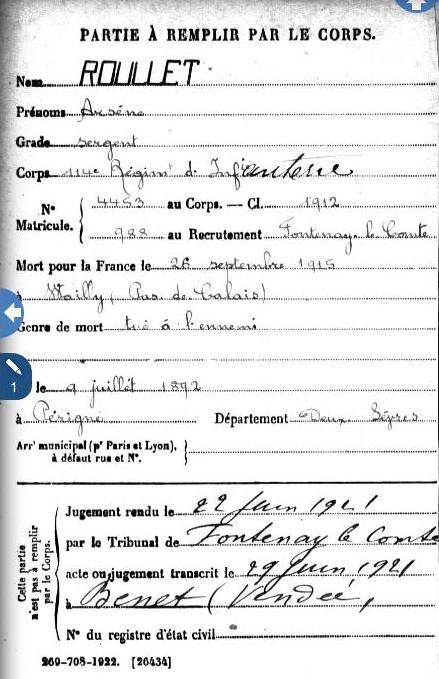 PARTIE À REMPLIR PAR LE CORPS.
Nom ROULLET
Prénoms Arsène
Grade sergent
Corps 114e Régimt d'Infanterie
N° Matricule. { 4453 au Corps. — Cl. 1912
988 au Recrutement Fontenay-le-Comte
Mort pour la France le 26 septembre 1915
à Wailly (Pas-de-Calais)
Genre de mort tué à l'ennemi
1
le 9 juillet 1892
à Périgné Département Deux Sèvres
Arrt municipal (pr Paris et Lyon), à défaut rue et N°. }
Cette partie n'est pas à remplir par le Corps.
Jugement rendu le 22 Juin 1921
par le Tribunal de Fontenay le Comte
acte ou jugement transcrit le 29 Juin 1921
à Benet (Vendée)
N° du registre d'état civil
269-708-1922. [26434]